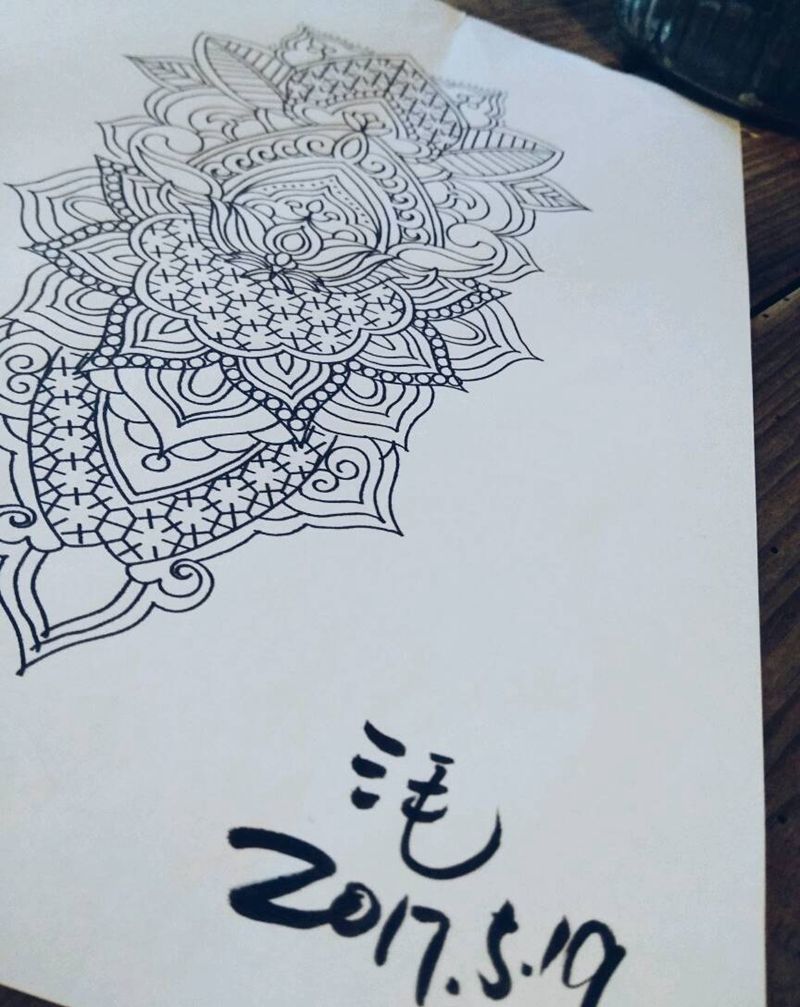 三毛
2017.5.19